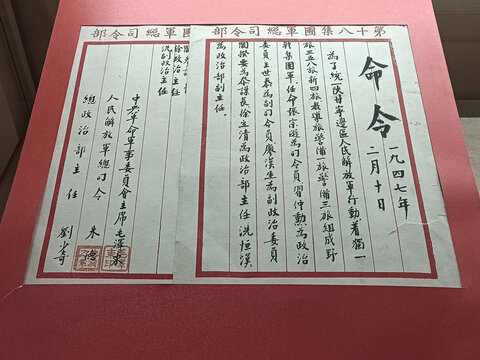 第十八集團軍總司令部
命令
一九四七年
二月十日
為了統一陝甘寧邊區人民解放軍行動着獨一
旅三五八旅新四旅教導旅警備一旅警備三旅組成野
集團軍。任命張宗遜為司令員習仲勳為政治
委員王世泰為副司令員廖漢生為副政治委員
閻揆要為參謀長徐立清為政治部主任冼恒漢
為政治部副主任。
團軍總司令部
徐政治主任
冼副政治主任
中央革命軍事委員會主席毛澤東
人民解放軍總司令 朱德
總政治部主任 劉少奇